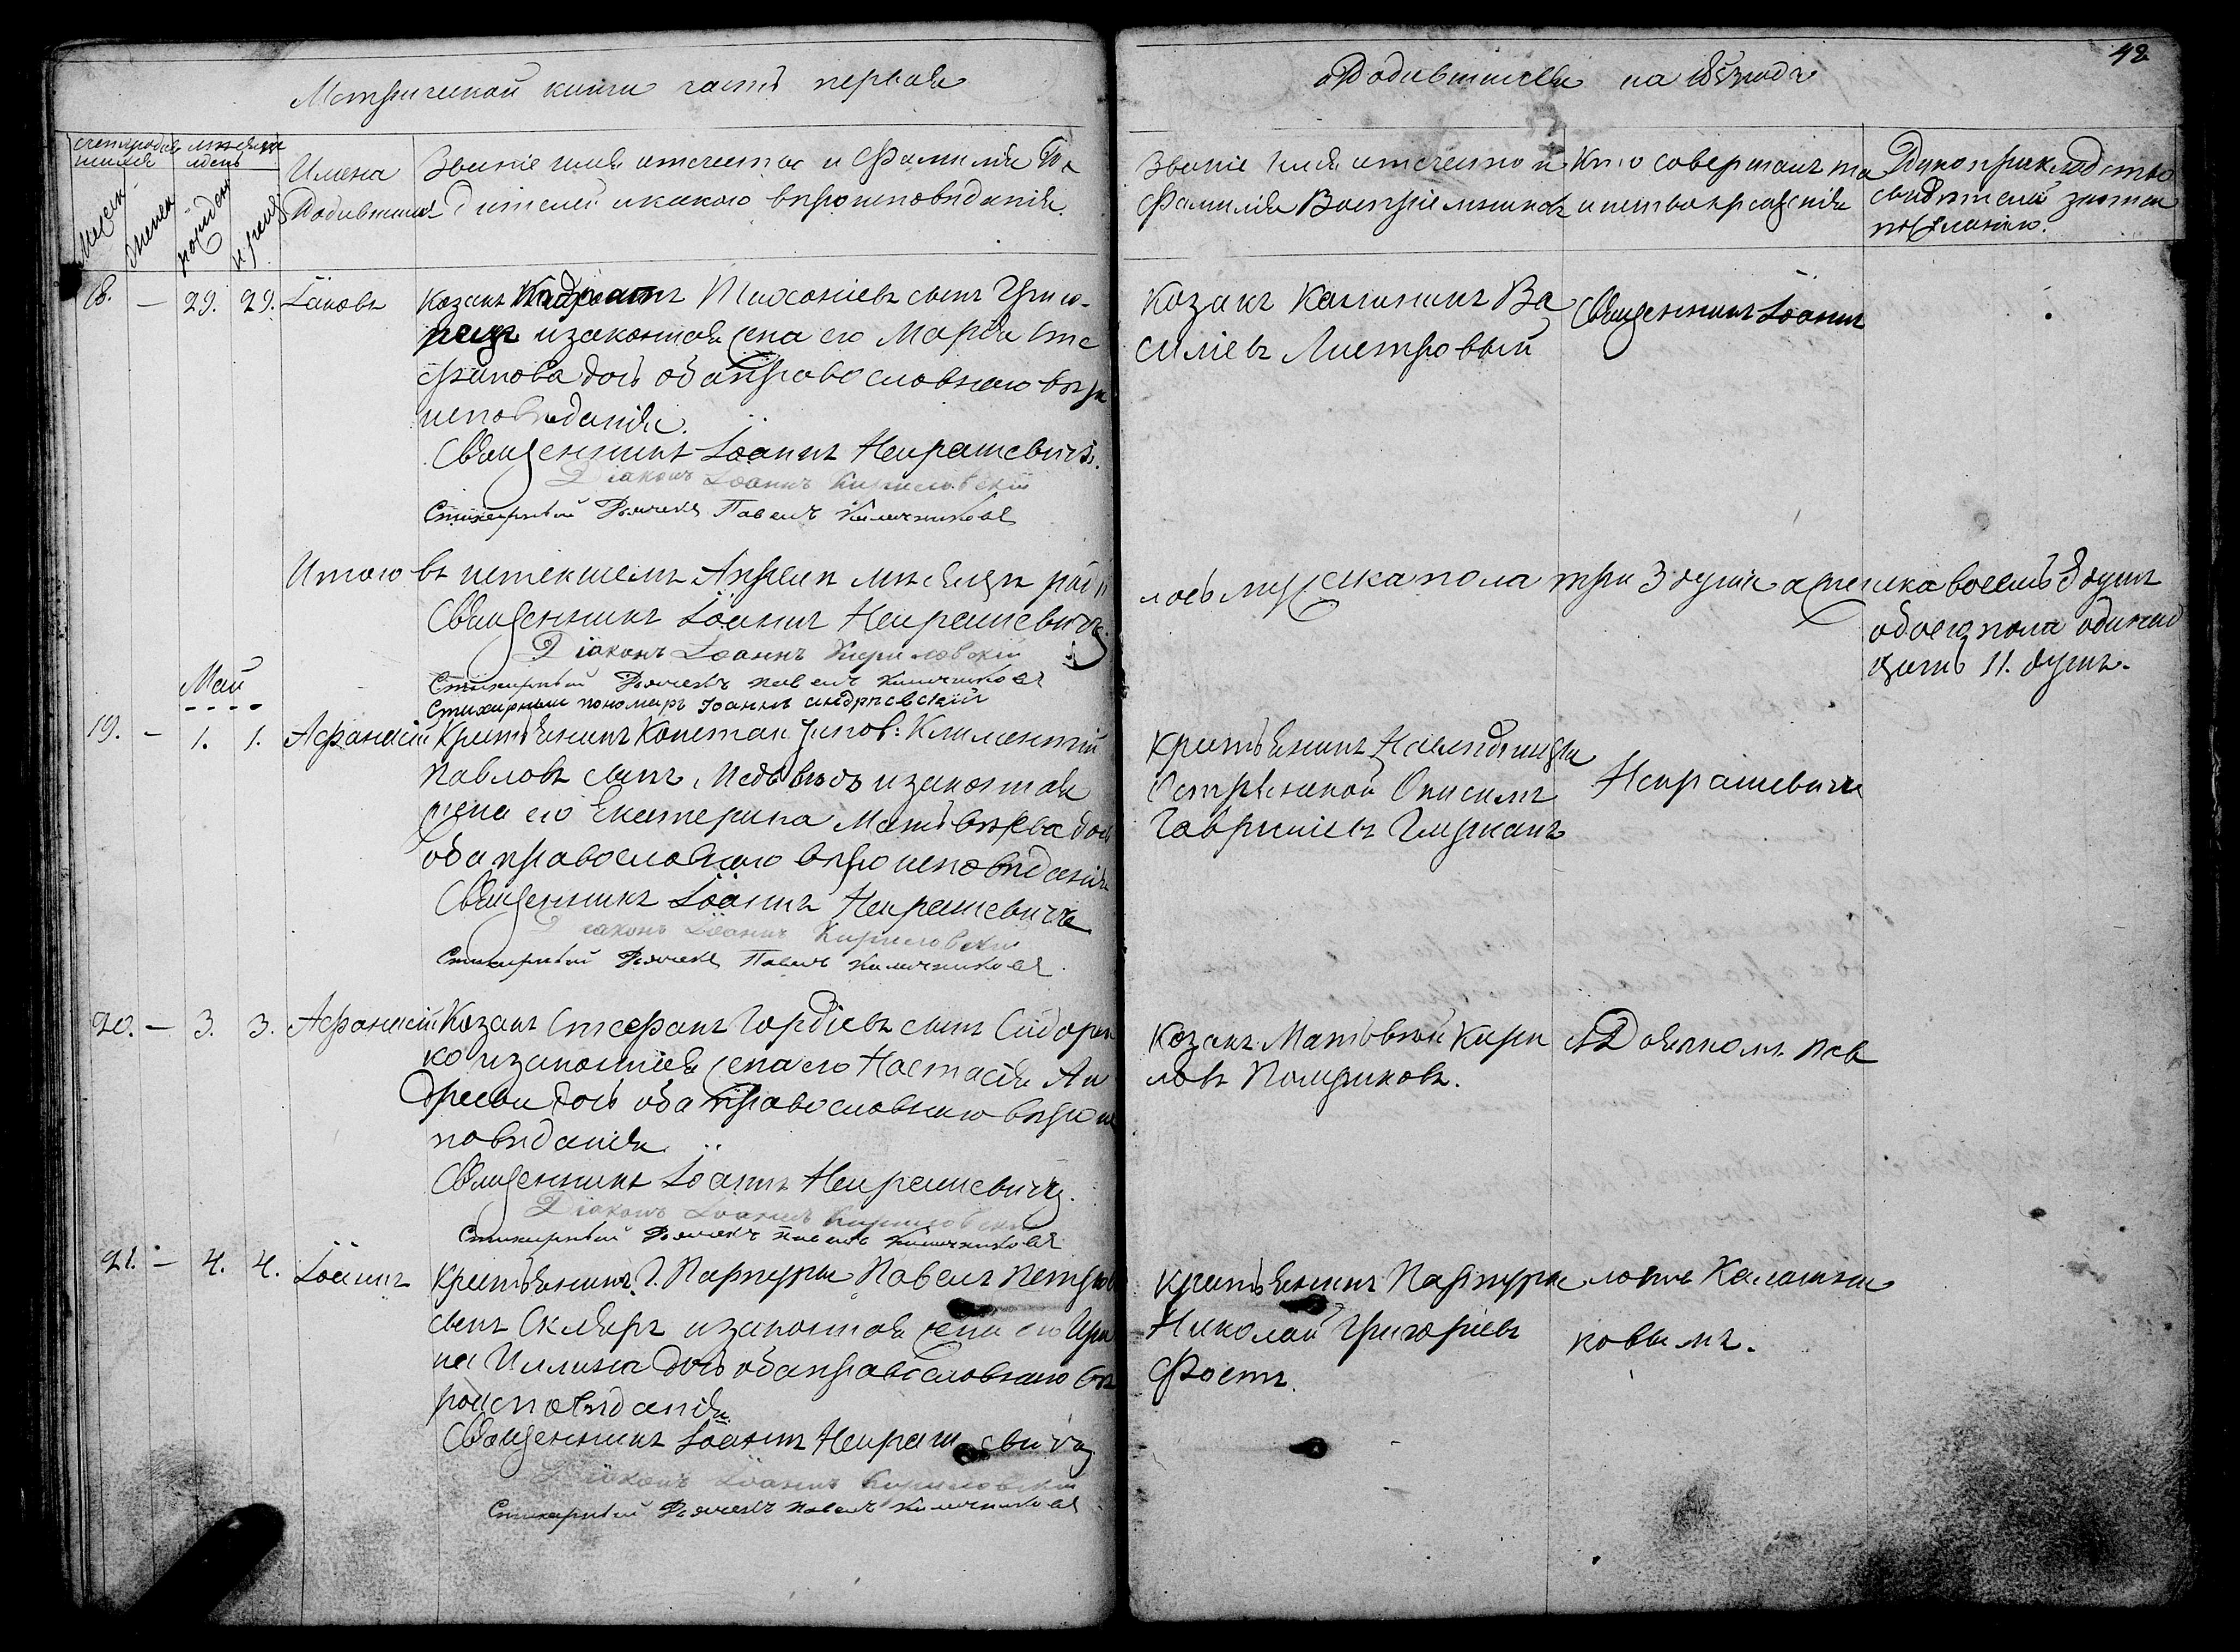 Метрической книги часть первая
о Родившихся на 1853 годъ
48
Счетъ родив
шихся
Мѣсяцъ
и день
Мужеск:
Женска
рожден
крещен
Имена
Родившихся
Званіе имя отчество и Фамилія Ро
дителей и какого вѣроисповѣданія.
Званіе Имя отчество и
Фамилія Воспріемниковъ
Кто совершалъ та
инство крещенія
Рукоприкладство
свидѣтелей записи
по желанію.
18. — 29. 29. Іаковъ
Козакъ Тихоніевъ сынъ
и законная жена его Марія Сте
фанова дочь оба православнаго вѣро
исповѣданія.
Священникъ Іоаннъ Неирашевичъ.
Діаконъ Іоаннъ Кириловскій
Стихарный Дьячекъ Павелъ
Козакъ Калиникъ Ва
силіевъ Листровый
Священникъ Іоаннъ
Итого въ истекшемъ Апрелѣ мѣсяцѣ роди
лось мужеска пола три 3 души а женска восемь 8 душъ
обоего пола одинад
цать 11. душъ.
Священникъ Іоаннъ Неирашевичъ
Діаконъ Іоаннъ Кириловскій
Стихарный Дьячекъ Павелъ
Стихарный пономарь Іоаннъ Андріевскій
Май
19. — 1. 1. Афанасій
Крестьянинъ Климентій
Павловъ сынъ Медвѣдь и законная
жена его Екатерина Матвѣева дочь
оба православнаго вѣроисповѣданія
Священникъ Іоаннъ Неирашевичъ
Діаконъ Іоаннъ Кириловскій
Стихарный Дьячекъ Павелъ
Крестьянинъ
Онисимъ
Гавриліевъ
Неирашевичъ
20. — 3. 3. Афанасій
Козакъ Стефанъ Гордіевъ сынъ Сидорен
ко и законная жена его Настасія Ан
дреева дочь оба православнаго вѣроис
повѣданія
Священникъ Іоаннъ Неирашевичъ.
Діаконъ Іоаннъ Кириловскій
Стихарный Дьячекъ Павелъ
Козакъ Матвѣй Кири
ловъ
съ Дьячкомъ Пав
21. — 4. 4. Іоаннъ
Крестьянинъ Г. Парпуры Павелъ Петровъ
сынъ Скляръ и законная жена его Ири
на Иллина дочь оба православнаго вѣ
роисповѣданія
Священникъ Іоаннъ Неирашевичъ
Діаконъ Іоаннъ Кириловскій
Стихарный Дьячекъ Павелъ
Крестьянинъ Парпуры
Николай Григоріевъ
ломъ
ковымъ.